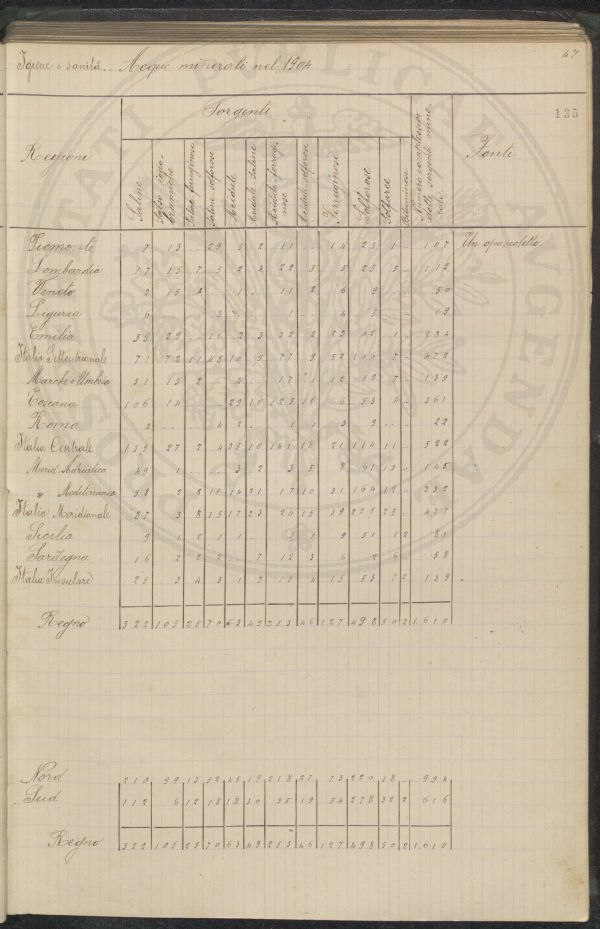 47
Igiene e sanità. — Acque minerali nel 1904
135
Regioni Sorgenti Fonti
Saline
Saline ferruginose
Saline solforose
Acidule
Acidule saline
Acidule ferruginose
Acidule solforose
Ferruginose
Solforose
Solfuree
Numero complessivo delle sorgenti minerali
Piemonte 7 13 .. 29 5 2 11 .. 14 25 1 .. 107 Un opuscoletto
Lombardia 17 15 7 5 2 22 5 5 5 112
Veneto 2 15 1 .. 11 2 6 9 50
Liguria 6 1 4 5
Emilia 39 29 .. 11 2 3 32 2 23 42 1 .. 184
Italia Settentrionale 71 72 11 48 10 9 77 9 52 7 472
Marche e Umbria 31 13 2 4 17 12 7 139
Toscana 106 14 29 10 123 16 6 4 361
Roma 2 4 2 1 1 3 9 22
Italia Centrale 139 27 2 4 35 10 141 18 21 114 11 .. 522
Merid. Adriatica 49 1 3 2 3 5 8 61 13 .. 145
" Mediterranea 38 2 8 15 14 21 17 10 31 164 12 .. 332
Italia Meridionale 87 3 8 15 17 23 20 15 39 225 25 .. 477
Sicilia 9 1 2 1 1 .. 3 1 9 51 1 2 81
Sardegna 16 2 2 2 .. 7 12 3 6 2 6 .. 58
Italia Insulare 25 3 4 3 1 7 15 4 15 53 7 2 139
Regno 322 105 25 70 63 49 253 46 127 498 50 2 1,610
Nord 210 99 13 52 45 19 218 27 73 220 18 .. 994
Sud 112 6 12 18 18 30 35 19 54 278 32 2 616
Regno 322 105 25 70 63 49 253 46 127 498 50 2 1,610